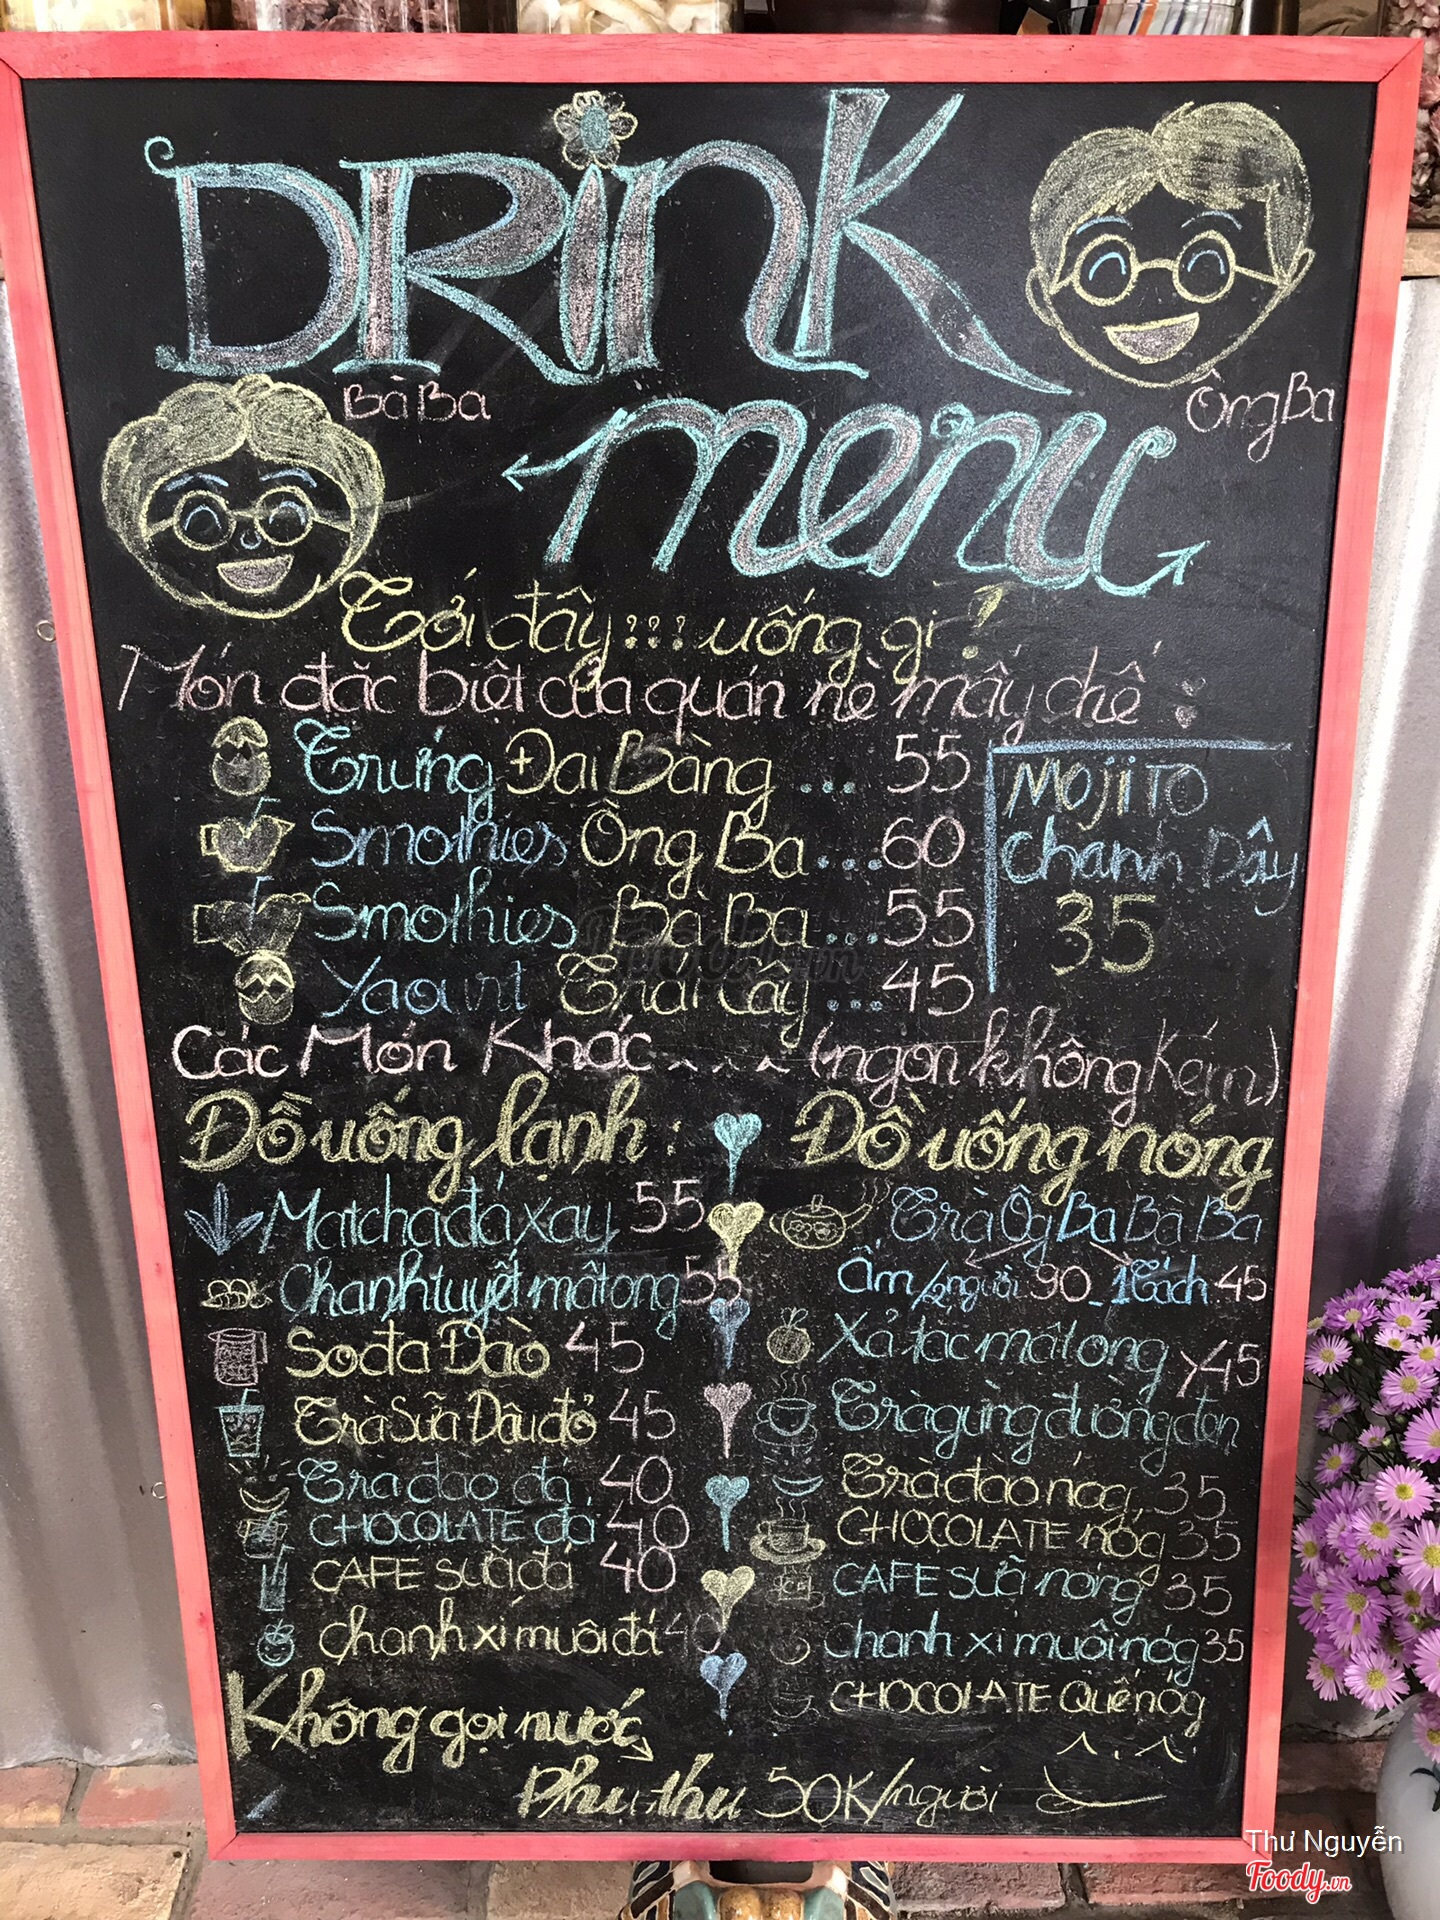 DRiNK
Bà Ba
Ông Ba
menu
Tới đây ??? uống gì !
Món đặc biệt của quán nè mấy chế :
Trứng Đại Bàng ... 55
Smothies Ông Ba ... 60
Smothies Bà Ba ... 55
Yaourt Trái Cây ... 45
MOJITO
Chanh Dây
35
Các Món Khác ^ ^ ^ (ngon không kém)
Đồ uống lạnh :
Matcha đá xay 55
Chanh tuyết mật ong 55
Soda Đào 45
Trà Sữa Dâu đỏ 45
Trà đào đá 40
CHOCOLATE đá 40
CAFE sữa đá 40
chanh xí muội đá 40
Đồ uống nóng
Trà Ôg Ba Bà Ba
Ấm/2người 90 - 1 Tách 45
Xả tắc mật ong
45
Trà gừng đường đen
Trà đào nóg 35
CHOCOLATE nóg 35
CAFE sữa nóng 35
Chanh xí muội nóg 35
CHOCOLATE Quế nóg
Không gọi nước
Phụ thu 50K/người
Foody.vn
Thư Nguyễn
Foody.vn